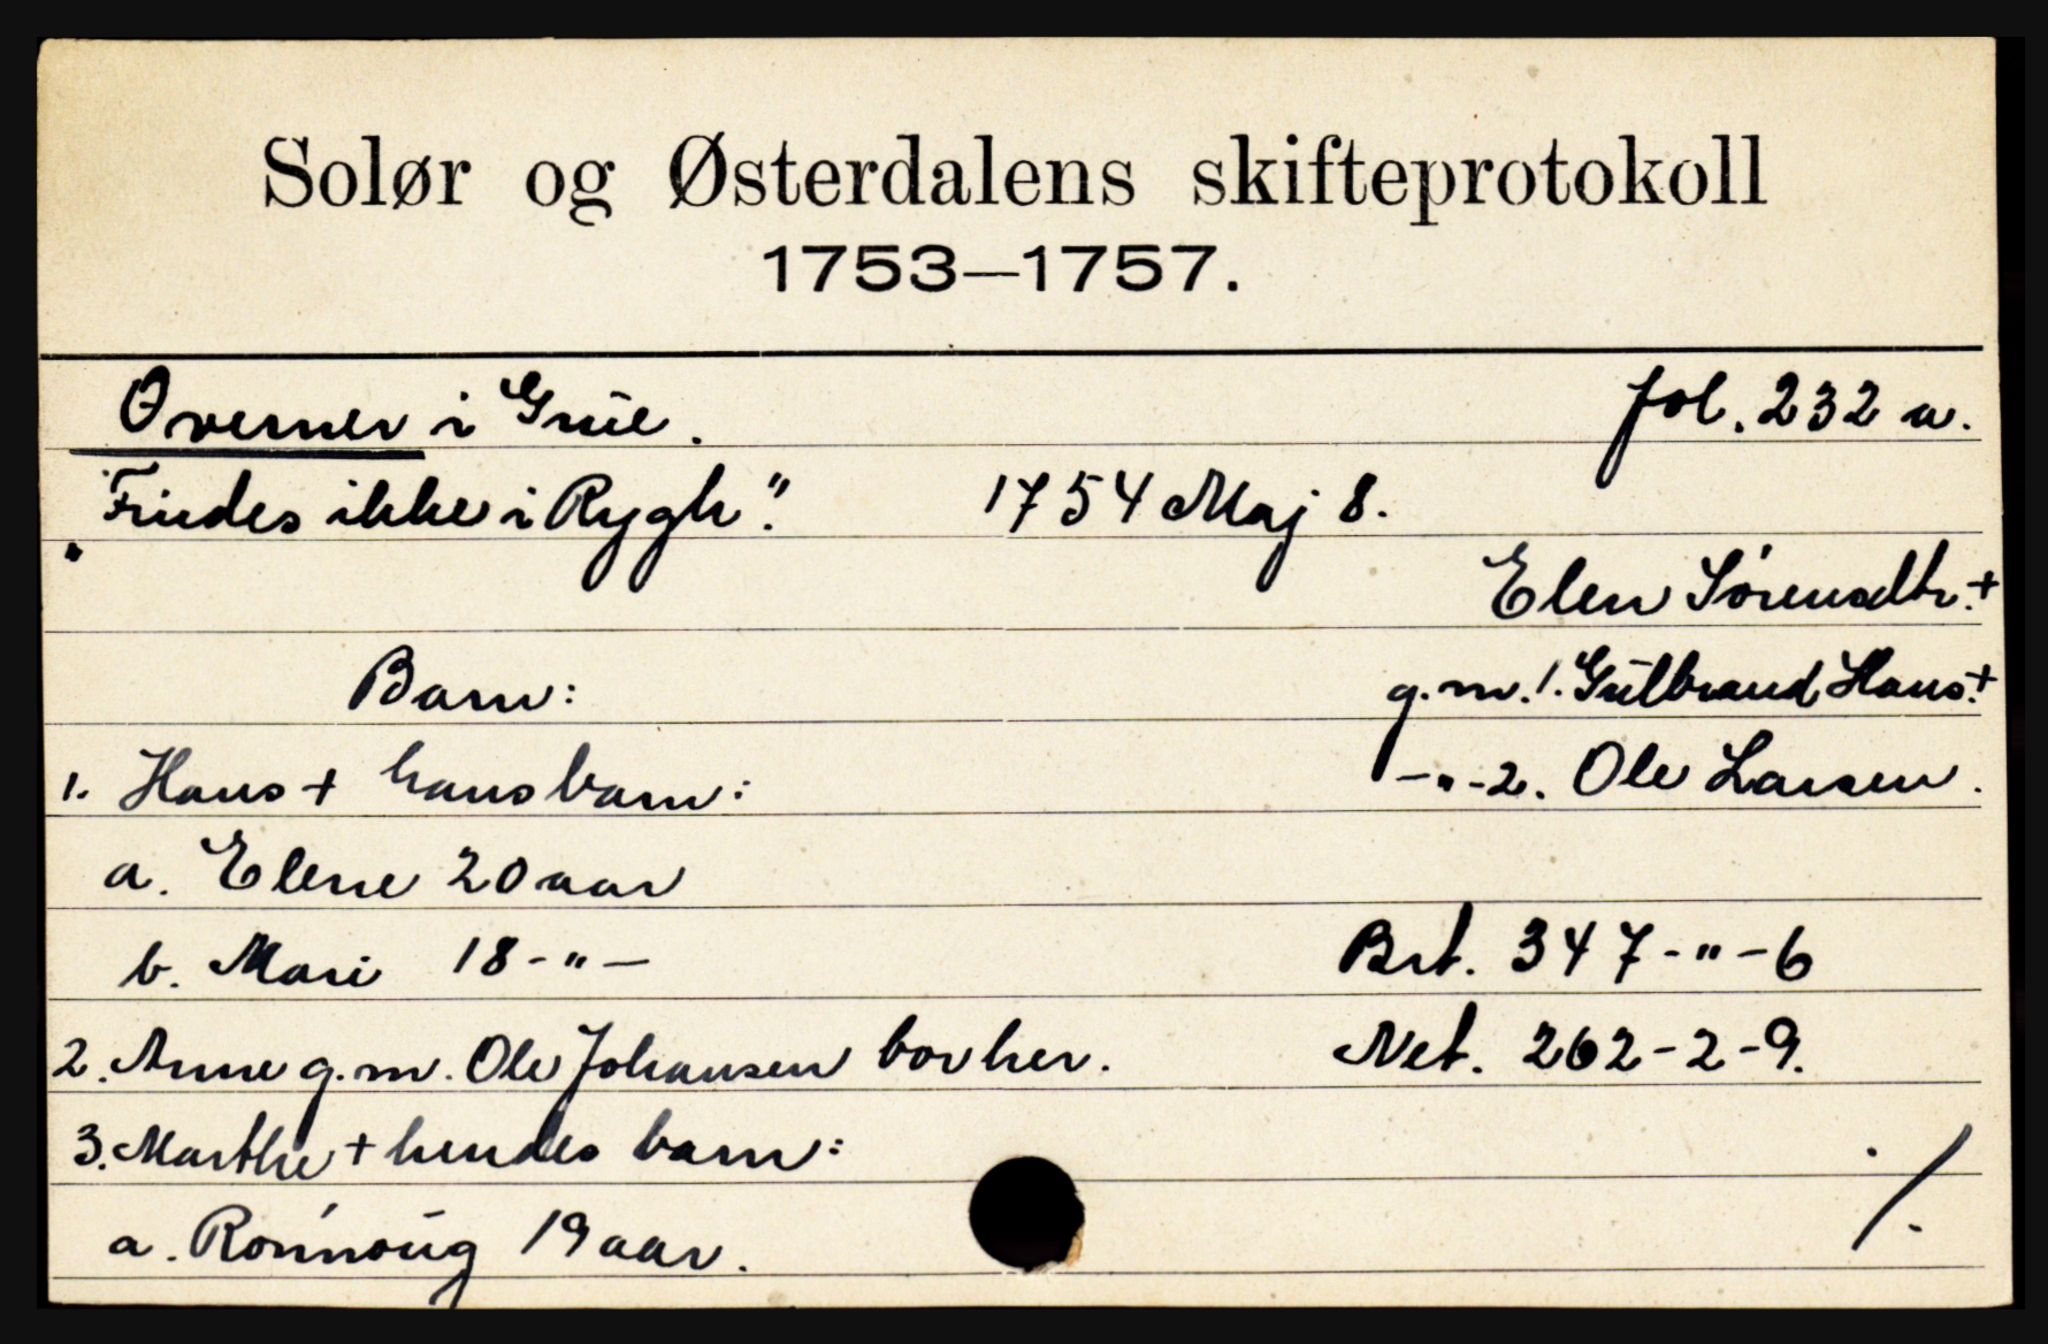 Solør og Østerdalens skifteprotokoll
1753—1757.
Overner i Grue. fol. 232 a.
„Findes ikke i Rygh". 1754 Maj 8.
Elen Sörensdtr. +
Barn: g.m. 1. Gulbrand Hans. +
1. Hans + hans barn: -"-2. Ole Larsen.
a. Elene 20 aar
b. Mari 18-"- Brt. 347-"-6
2. Anne g.m. Ole Johansen bor her. Net. 262-2-9.
3. Marthe + hendes barn: ./.
a. Rönnoug 19 aar.